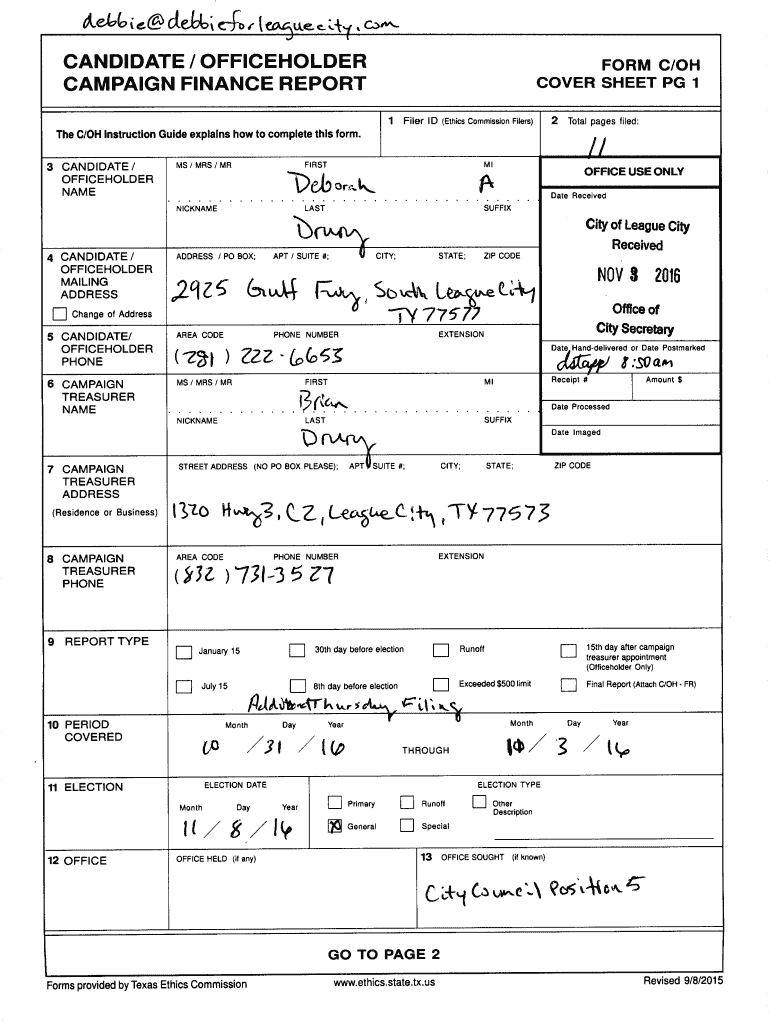 debbie@debbieforleaguecity.com
CANDIDATE / OFFICEHOLDER
CAMPAIGN FINANCE REPORT
FORM C/OH
COVER SHEET PG 1
The C/OH Instruction Guide explains how to complete this form.
1 Filer ID (Ethics Commission Filers)
2 Total pages filed:
11
3 CANDIDATE /
OFFICEHOLDER
NAME
MS / MRS / MR FIRST MI
Deborah A
NICKNAME LAST SUFFIX
Drury
OFFICE USE ONLY
Date Received
City of League City
Received
NOV 3 2016
Office of
City Secretary
4 CANDIDATE /
OFFICEHOLDER
MAILING
ADDRESS
Change of Address
ADDRESS / PO BOX; APT / SUITE #; CITY; STATE; ZIP CODE
2925 Gulf Fwy, South League City
TX 77577
5 CANDIDATE/
OFFICEHOLDER
PHONE
AREA CODE PHONE NUMBER EXTENSION
(281) 222-6653
Date Hand-delivered or Date Postmarked
dstapp 8:50am
Receipt # Amount $
Date Processed
Date Imaged
6 CAMPAIGN
TREASURER
NAME
MS / MRS / MR FIRST MI
Brian
NICKNAME LAST SUFFIX
Drury
7 CAMPAIGN
TREASURER
ADDRESS
(Residence or Business)
STREET ADDRESS (NO PO BOX PLEASE); APT / SUITE #; CITY; STATE; ZIP CODE
1320 Hwy 3, C2, League City, TX 77573
8 CAMPAIGN
TREASURER
PHONE
AREA CODE PHONE NUMBER EXTENSION
(832) 731-3527
9 REPORT TYPE
January 15 30th day before election Runoff 15th day after campaign
treasurer appointment
(Officeholder Only)
July 15 8th day before election Exceeded $500 limit Final Report (Attach C/OH - FR)
Thursday Filing
10 PERIOD
COVERED
Month Day Year Month Day Year
10 / 31 / 16 THROUGH / 3 / 16
11 ELECTION
ELECTION DATE
Month Day Year
11 / 8 / 16
ELECTION TYPE
Primary Runoff Other
Description
General Special
12 OFFICE
OFFICE HELD (if any)
13 OFFICE SOUGHT (if known)
City Council Position 5
GO TO PAGE 2
Forms provided by Texas Ethics Commission www.ethics.state.tx.us Revised 9/8/2015